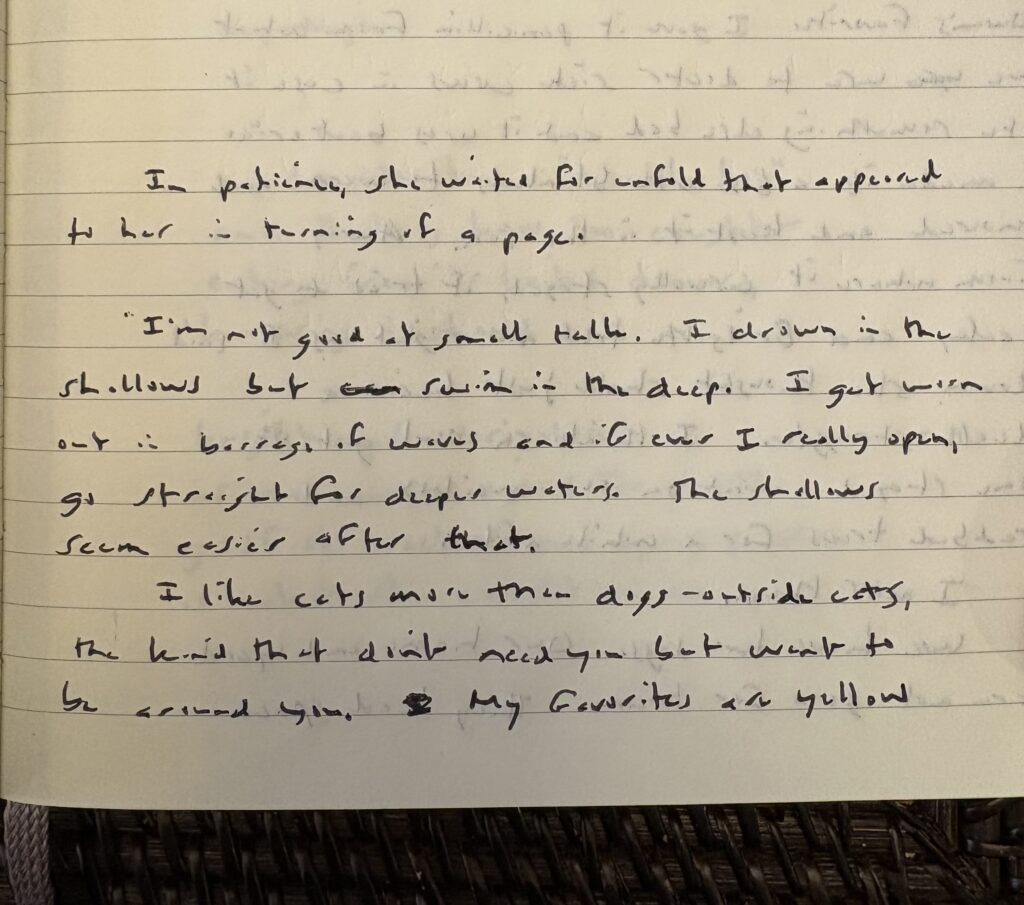 In patience, she waited for unfold that appeared
to her in turning of a page.
"I'm not good at small talk. I drown in the
shallows but swim in the deep. I get worn
out in barrage of waves and if ever I really open,
go straight for deeper waters. The shallows
seem easier after that.
I like cats more than dogs - outside cats,
the kind that don't need you but want to
be around you. My favorites are yellow